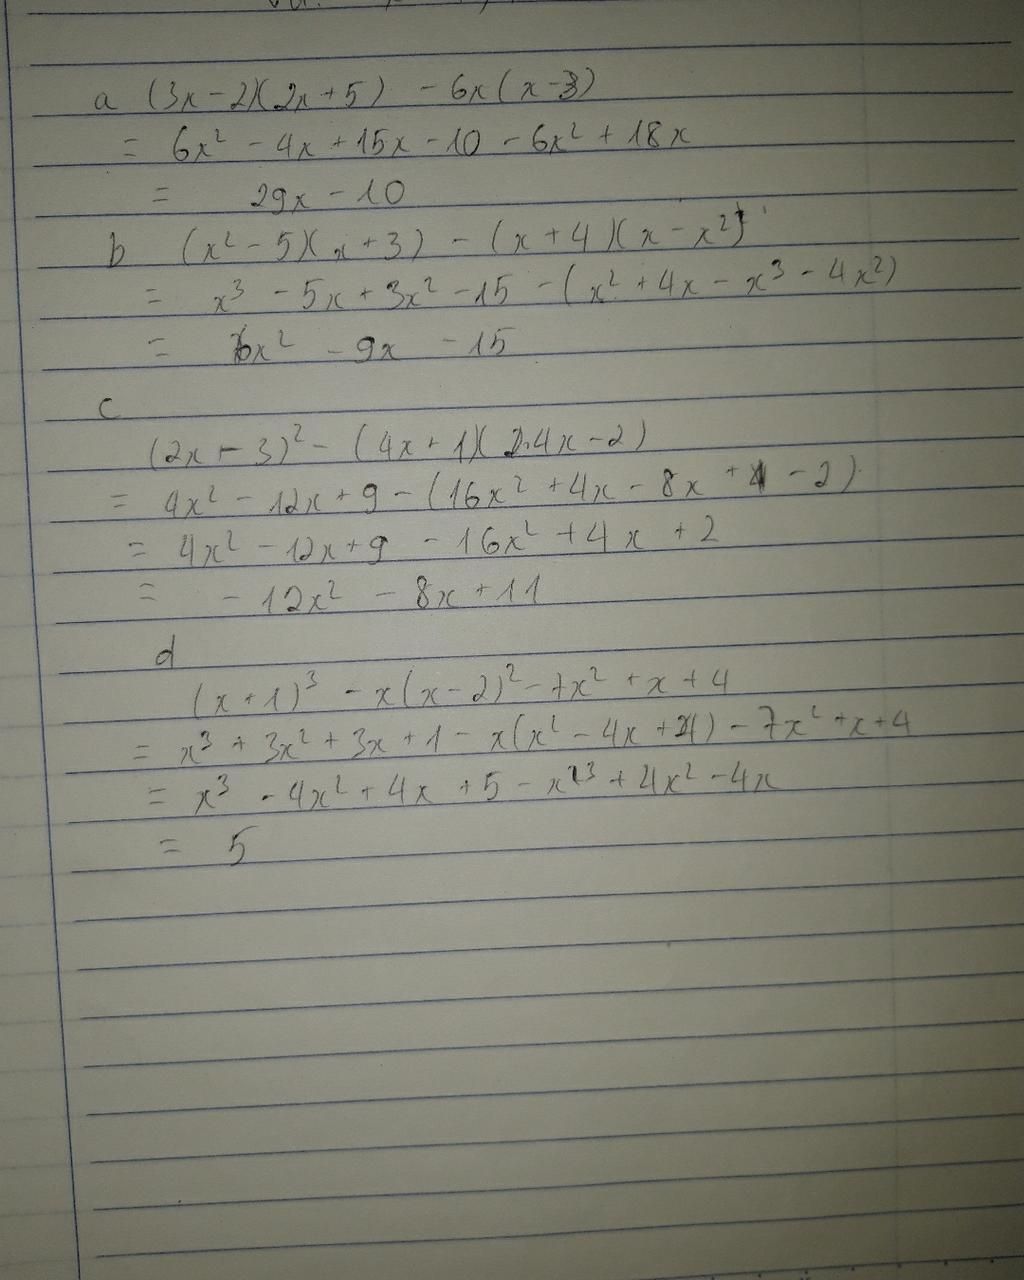 a (3x-2)(2x+5) - 6x(x-3)
= 6x² - 4x + 15x - 10 - 6x² + 18x
= 29x - 10
b (x² - 5)(x + 3) - (x + 4)(x - x²)
= x³ - 5x + 3x² - 15 - (x² + 4x - x³ - 4x²)
= 6x² - 9x - 15
c
(2x - 3)² - (4x + 1)(4x - 2)
= 4x² - 12x + 9 - (16x² + 4x - 8x - 2)
= 4x² - 12x + 9 - 16x² + 4x + 2
= - 12x² - 8x + 11
d
(x + 1)³ - x(x - 2)² - 7x² + x + 4
= x³ + 3x² + 3x + 1 - x(x² - 4x + 4) - 7x² + x + 4
= x³ - 4x² + 4x + 5 - x³ + 4x² - 4x
= 5